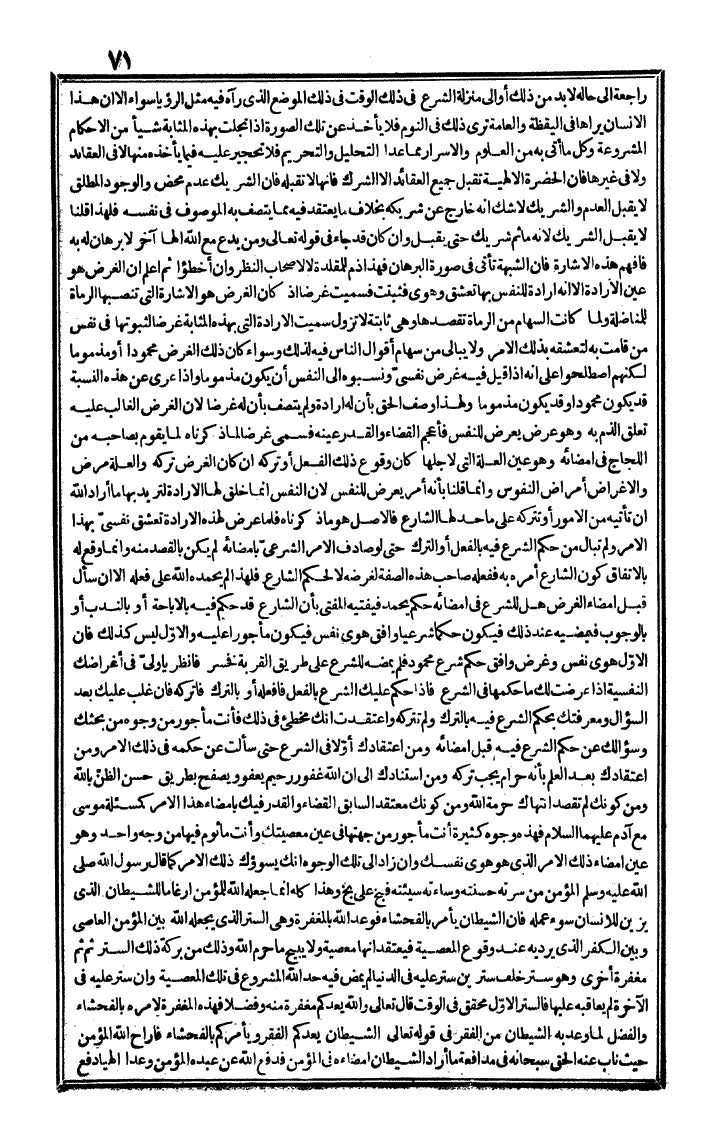 ٧١
راجعة الى حاله لا بد من ذلك أو الى منزلة الشرع فى ذلك الوقت فى ذلك الموضع الذى رآه فيه مثل الرؤيا سواء الا ان هذا
الانسان يراها فى اليقظة والعامة ترى ذلك فى النوم فلا يأخذ عن تلك الصورة اذا تجلت بهذه المثابة شيأ من الاحكام
المشروعة وكل ما أتى به من العلوم والاسرار مما عدا التحليل والتحريم فلا تحجير عليه فيما يأخذه منها لا فى العقائد
ولا فى غيرها فان الحضرة الالهية تقبل جميع العقائد الا الشرك فانها لا تقبله فان الشريك عدم محض والوجود المطلق
لا يقبل العدم والشريك لا شك انه خارج عن شريكه بخلاف ما يعتقد فيه مما يتصف به الموصوف فى نفسه فلهذا قلنا
لا يقبل الشريك لانه ما ثم شريك حتى يقبل وان كان قد جاء فى قوله تعالى ومن يدع مع الله الها آخر لا برهان له به
فافهم هذه الاشارة فان الشبهة تأتى فى صورة البرهان فهذا ذم للمقلدة لا لاصحاب النظر وان أخطؤا ثم اعلم ان الغرض هو
عين الارادة الا انه ارادة للنفس بها تعشق وهوى فثبتت فسميت غرضا اذ كان الغرض هو الاشارة التى تنصبها الرماة
للمناضلة ولما كانت السهام من الرماة تقصدها وهى ثابتة لا تزول سميت الارادة التى بهذه المثابة غرضا لثبوتها فى نفس
من قامت به لتعشقه بذلك الامر ولا يبالى من سهام أقوال الناس فيه لذلك وسواء كان ذلك الغرض محمودا أو مذموما
لكنهم اصطلحوا على انه اذا قيل فيه غرض نفسىّ ونسبوه الى النفس أن يكون مذموما واذا عرى عن هذه النسبة
قد يكون محمودا وقد يكون مذموما ولهذا وصف الحق بأن له ارادة ولم يتصف بأن له غرضا لان الغرض الغالب عليه
تعلق الذم به وهو عرض يعرض للنفس فأعجم القضاء والقدر عينه فسمى غرضا لما ذكرناه لما يقوم بصاحبه من
اللجاج فى امضائه وهو عين العلة التى لاجلها كان وقوع ذلك الفعل أو تركه ان كان الغرض تركه والعلة مرض
والاغراض أمراض النفوس وانما قلنا بأنه أمر يعرض للنفس لان النفس انما خلق لها الارادة لتريد بها ما أراد الله
ان تأتيه من الامور أو تتركه على ما حد لها الشارع فالاصل هو ما ذكرناه فلما عرض لهذه الارادة تعشق نفسىّ بهذا
الامر ولم تبال من حكم الشرع فيه بالفعل أو الترك حتى لو صادف الامر الشرعىّ بامضائه لم يكن بالقصد منه وانما وقع له
بالاتفاق كون الشارع أمره به ففعله صاحب هذه الصفة لغرضه لا لحكم الشارع فلهذا لم يحمده الله على فعله الا ان سأل
قبل امضاء الغرض هل للشرع فى امضائه حكم يحمد فيفتيه المفتى بأن الشارع قد حكم فيه بالاباحة أو بالندب أو
بالوجوب فيمضيه عند ذلك فيكون حكما شرعيا وافق هوى نفس فيكون مأجورا عليه والاول ليس كذلك فان
الاول هوى نفس وغرض وافق حكم شرع محمود فلم يمضه للشرع على طريق القربة فخسر فانظر يا ولىّ فى أغراضك
النفسية اذا عرضت لك ما حكمها فى الشرع فاذا حكم عليك الشرع بالفعل فافعله أو بالترك فاتركه فان غلب عليك بعد
السؤال ومعرفتك بحكم الشرع فيه بالترك ولم تتركه واعتقدت انك مخطئ فى ذلك فأنت مأجور من وجوه من بحثك
وسؤالك عن حكم الشرع فيه قبل امضائه ومن اعتقادك أولا فى الشرع حتى سألت عن حكمه فى ذلك الامر ومن
اعتقادك بعد العلم بأنه حرام يجب تركه ومن استنادك الى ان الله غفور رحيم يعفو ويصفح بطريق حسن الظنّ بالله
ومن كونك لم تقصد انتهاك حرمة الله ومن كونك معتقد السابق القضاء والقدر فيك بامضاء هذا الامر كمسئلة موسى
مع آدم عليهما السلام فهذه وجوه كثيرة أنت مأجور من جهتها فى عين معصيتك وأنت مأثوم فيها من وجه واحد وهو
عين امضاء ذلك الامر الذى هو هوى نفسك وان زاد الى تلك الوجوه انك يسوؤك ذلك الامر كما قال رسول الله صلى
الله عليه وسلم المؤمن من سرته حسنته وساءته سيئته فبخ على بخ وهذا كله انما جعله الله للمؤمن ارغاما للشيطان الذى
يزين للانسان سوء عمله فان الشيطان يأمر بالفحشاء فوعد الله بالمغفرة وهى الستر الذى يجعله الله بين المؤمن العاصى
وبين الكفر الذى يرديه عند وقوع المعصية فيعتقد انها معصية ولا يبيح ما حرم الله وذلك من بركة ذلك الستر ثم ثم
مغفرة أخرى وهو ستر خلف ستر بن ستر عليه فى الدنيا لم يمض فيه حد الله المشروع فى تلك المعصية وان ستر عليه فى
الآخرة لم يعاقبه عليها فالستر الاول محقق فى الوقت قال تعالى والله يعدكم مغفرة منه وفضلا فهذه المغفرة لامره بالفحشاء
والفضل لما وعد به الشيطان من الفقر فى قوله تعالى الشيطان يعدكم الفقر ويأمركم بالفحشاء فاراح الله المؤمن
حيث ناب عنه الحق سبحانه فى مدافعة ما أراد الشيطان امضاءه فى المؤمن فدفع الله عن عبده المؤمن وعدا الهيا دفع